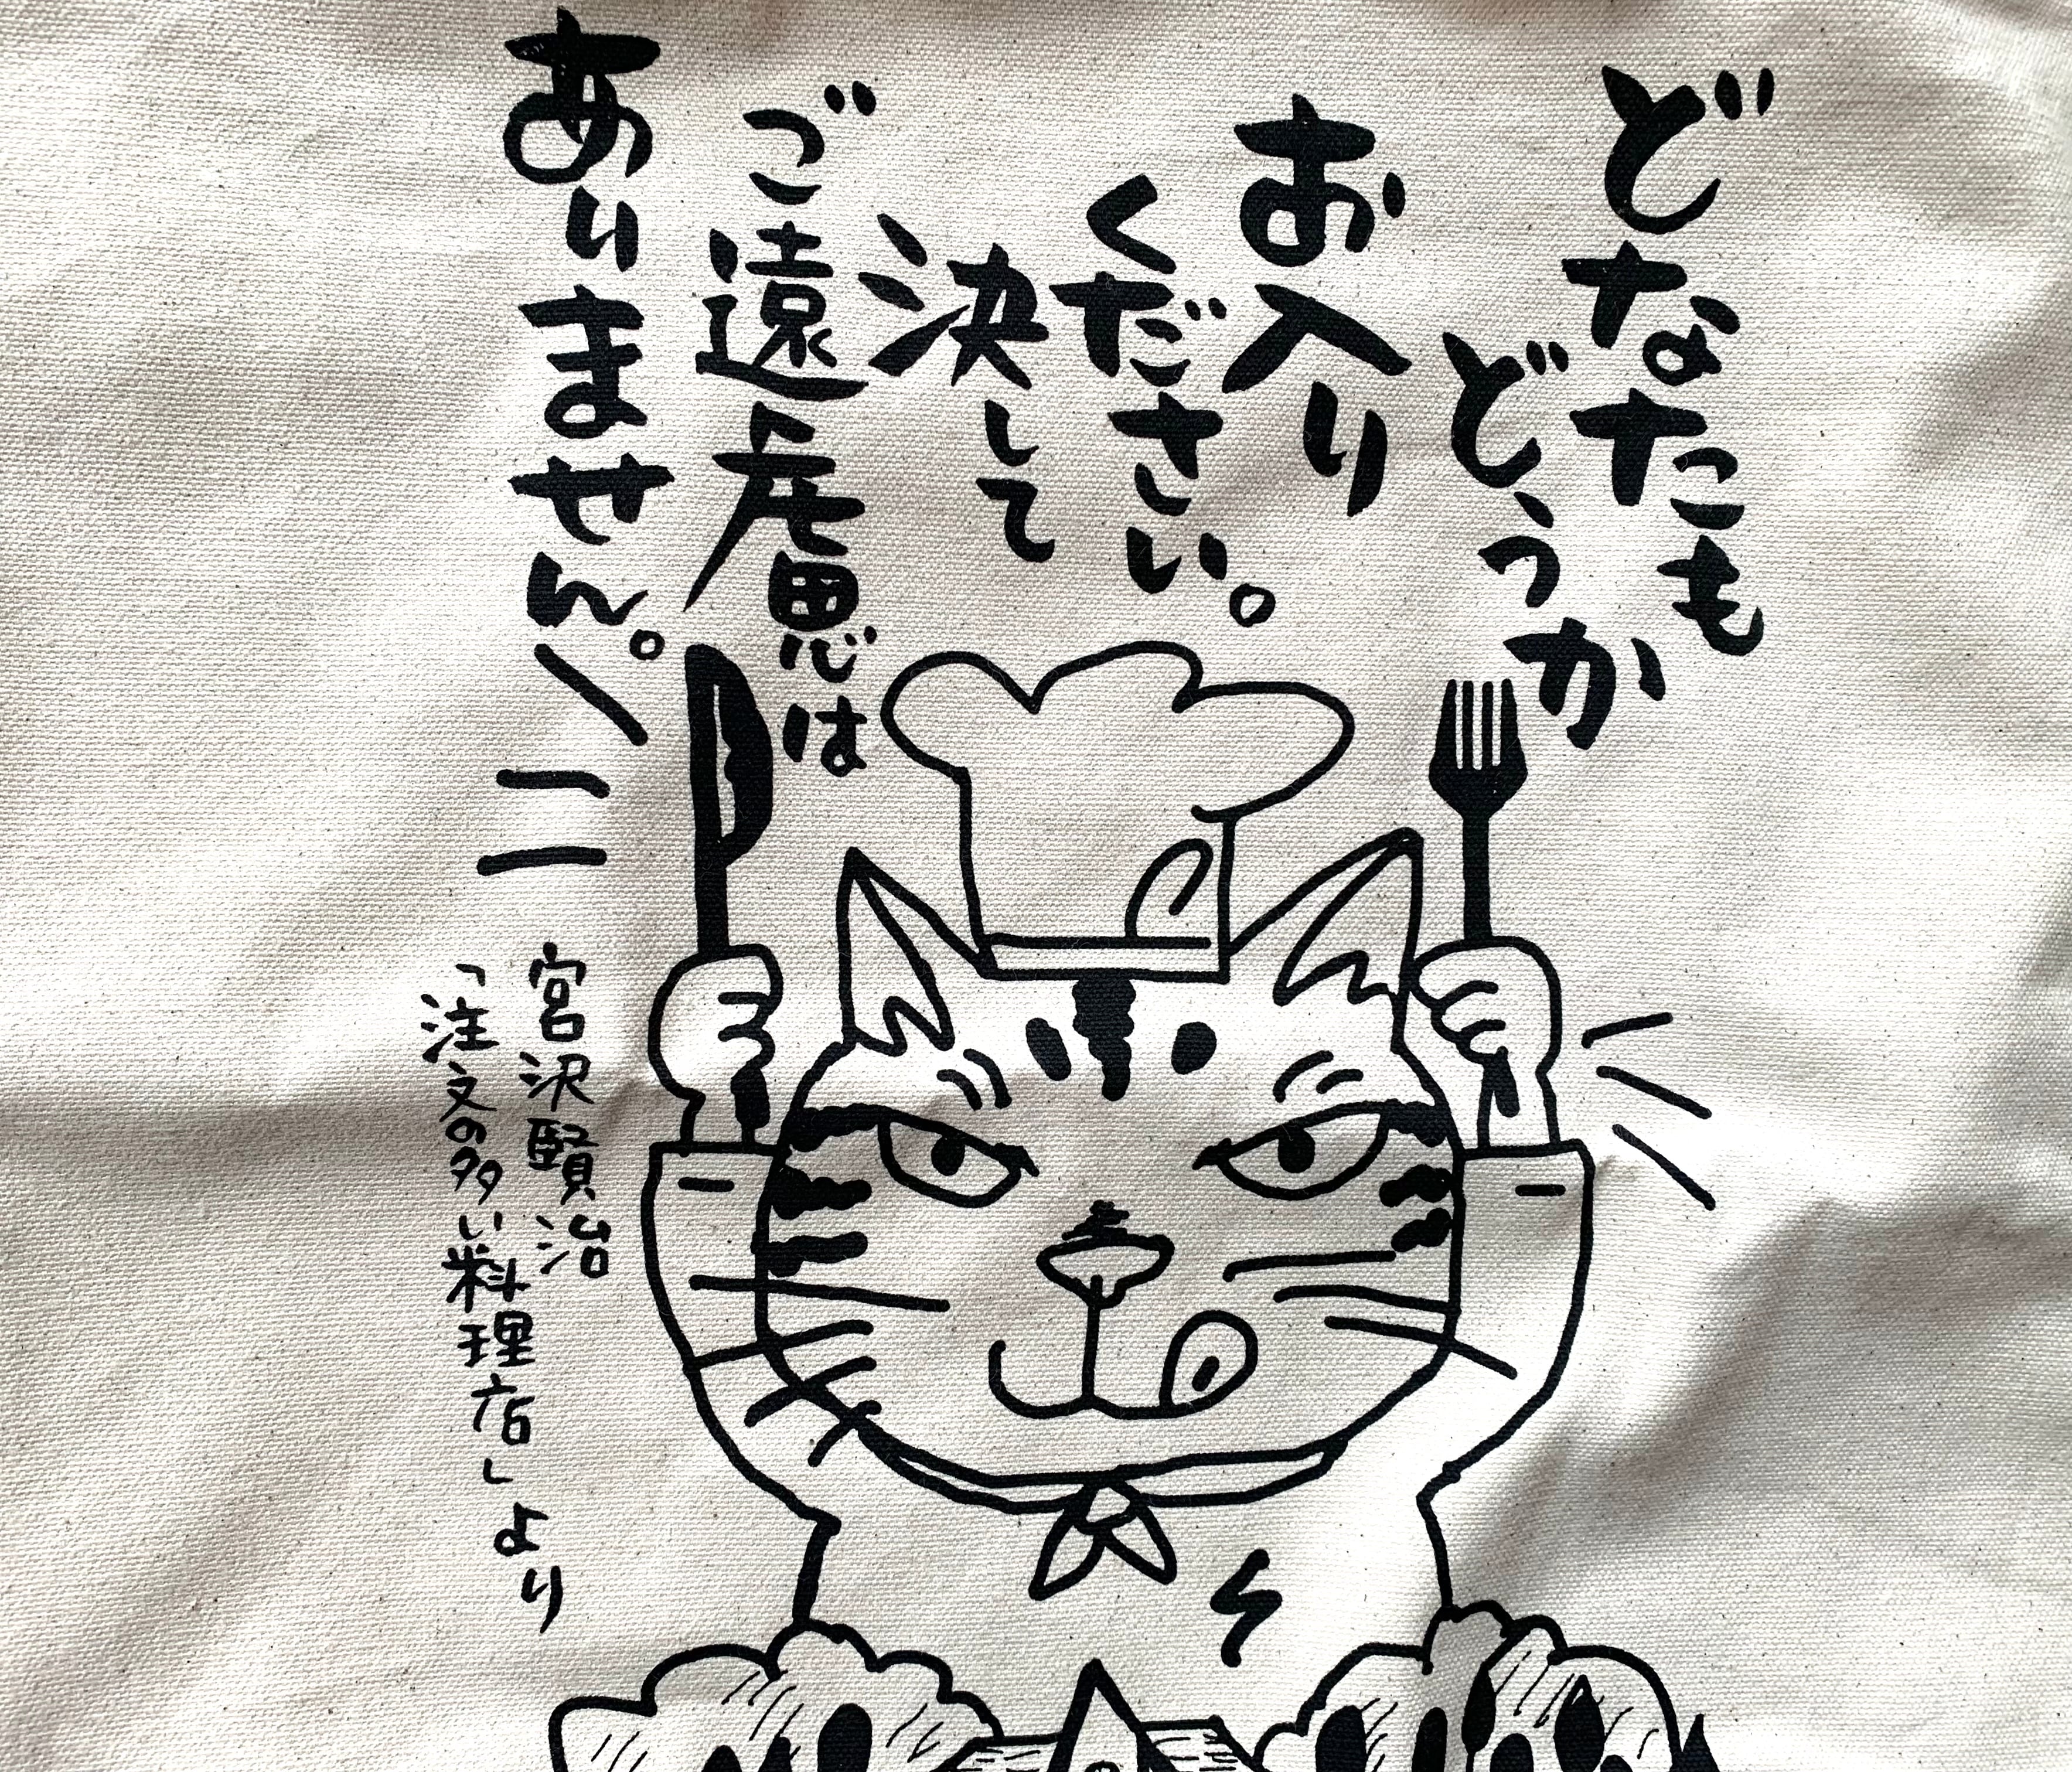 どなたも
どうか
お入り
ください。
決して
ご遠慮は
ありません。
宮沢賢治
「注文の多い料理店」より